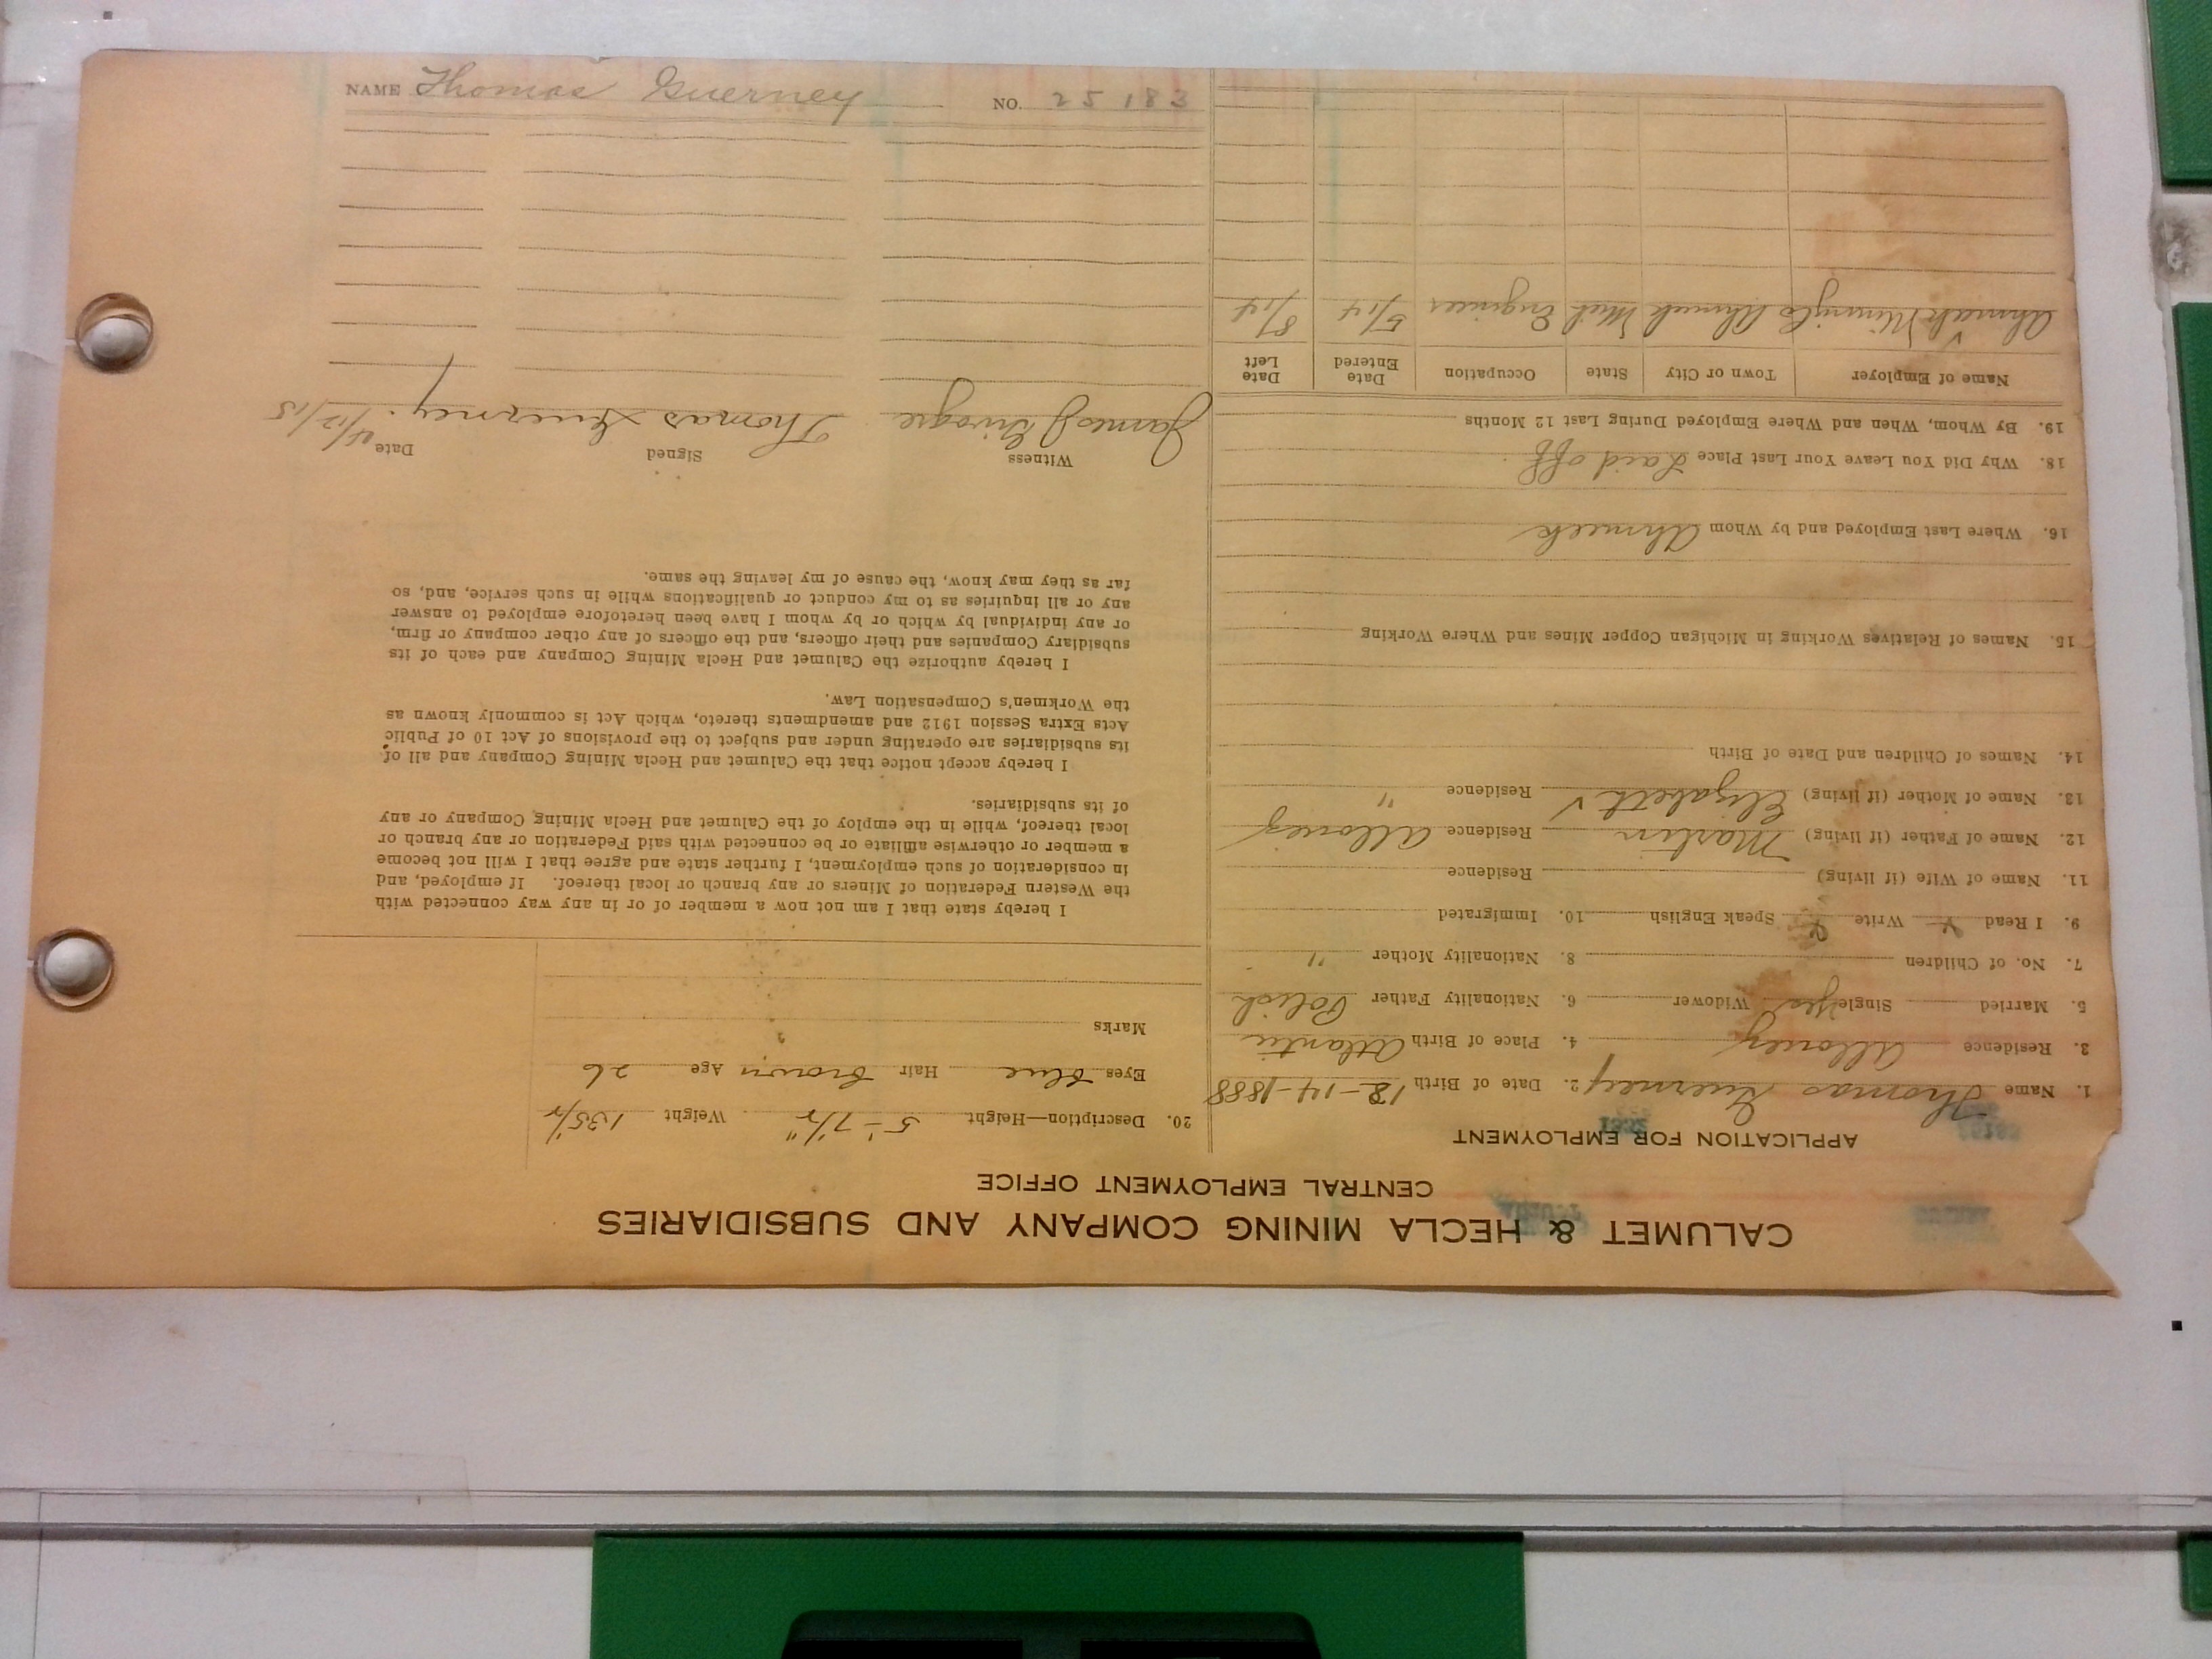 NAME Thomas Guerney NO. 25183
CALUMET & HECLA MINING COMPANY AND SUBSIDIARIES
CENTRAL EMPLOYMENT OFFICE
APPLICATION FOR EMPLOYMENT
1. Name Thomas Guerney 2. Date of Birth 12-14-1888
3. Residence Allouez 4. Place of Birth Atlantic
5. Married Single Yes Widower 6. Nationality Father Polish
7. No. of Children 8. Nationality Mother "
9. I Read Y Write Y Speak English 10. Immigrated
11. Name of Wife (if living) Residence
12. Name of Father (if living) Martin Residence Allouez
13. Name of Mother (if living) Elizabeth ✓ Residence "
14. Names of Children and Date of Birth
15. Names of Relatives Working in Michigan Copper Mines and Where Working
16. Where Last Employed and by Whom Ahmeek
18. Why Did You Leave Your Last Place Laid off
19. By Whom, When and Where Employed During Last 12 Months
Name of Employer Town or City State Occupation Date Entered Date Left
Ahmeek Mining Co Ahmeek Mich Engineer 5/14 8/14
20. Description—Height 5'-7½" Weight 135½
Eyes blue Hair Brown Age 26
Marks
I hereby state that I am not now a member of or in any way connected with
the Western Federation of Miners or any branch or local thereof. If employed, and
in consideration of such employment, I further state and agree that I will not become
a member or otherwise affiliate or be connected with said Federation or any branch or
local thereof, while in the employ of the Calumet and Hecla Mining Company or any
of its subsidiaries.
I hereby accept notice that the Calumet and Hecla Mining Company and all of
its subsidiaries are operating under and subject to the provisions of Act 10 of Public
Acts Extra Session 1912 and amendments thereto, which Act is commonly known as
the Workmen's Compensation Law.
I hereby authorize the Calumet and Hecla Mining Company and each of its
subsidiary Companies and their officers, and the officers of any other company or firm,
or any individual by which or by whom I have been heretofore employed to answer
any or all inquiries as to my conduct or qualifications while in such service, and, so
far as they may know, the cause of my leaving the same.
Witness Signed Date
James J Thomas Guerney. 4/12/15